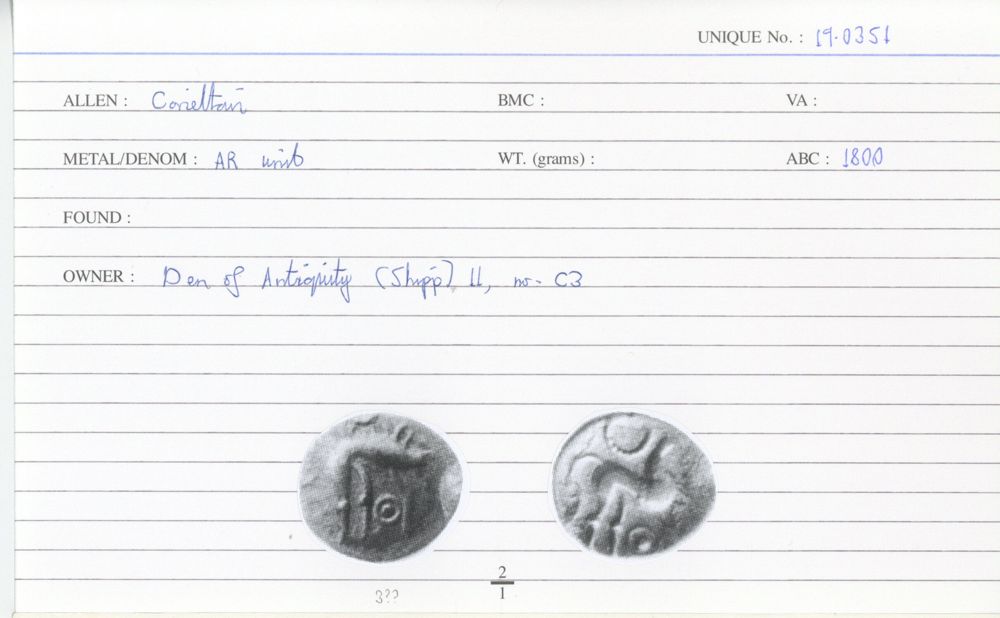 UNIQUE No. : 19.0351
ALLEN : Corieltavi BMC : VA :
METAL/DENOM : AR unit WT. (grams) : ABC : 1800
FOUND :
OWNER : Den of Antiquity (Shipp) 11, no. C3
2
1
3??